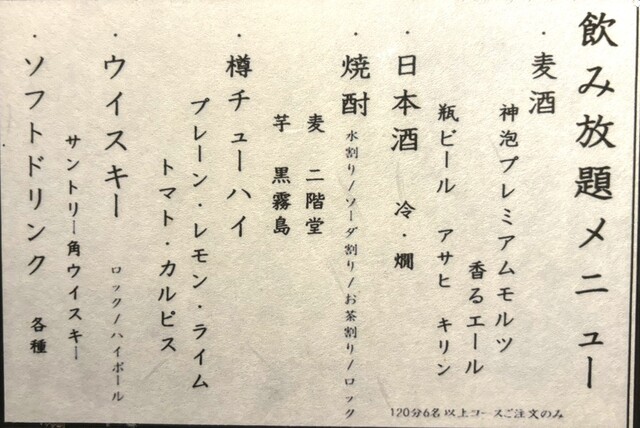 飲み放題メニュー
・麦酒
神泡プレミアムモルツ
香るエール
瓶ビール アサヒ キリン
・日本酒 冷・燗
・焼酎 水割り/ソーダ割り/お茶割り/ロック
麦 二階堂
芋 黒霧島
・樽チューハイ
プレーン・レモン・ライム
トマト・カルピス
・ウイスキー ロック/ハイボール
サントリー角ウイスキー
・ソフトドリンク 各種
120分6名以上コースご注文のみ